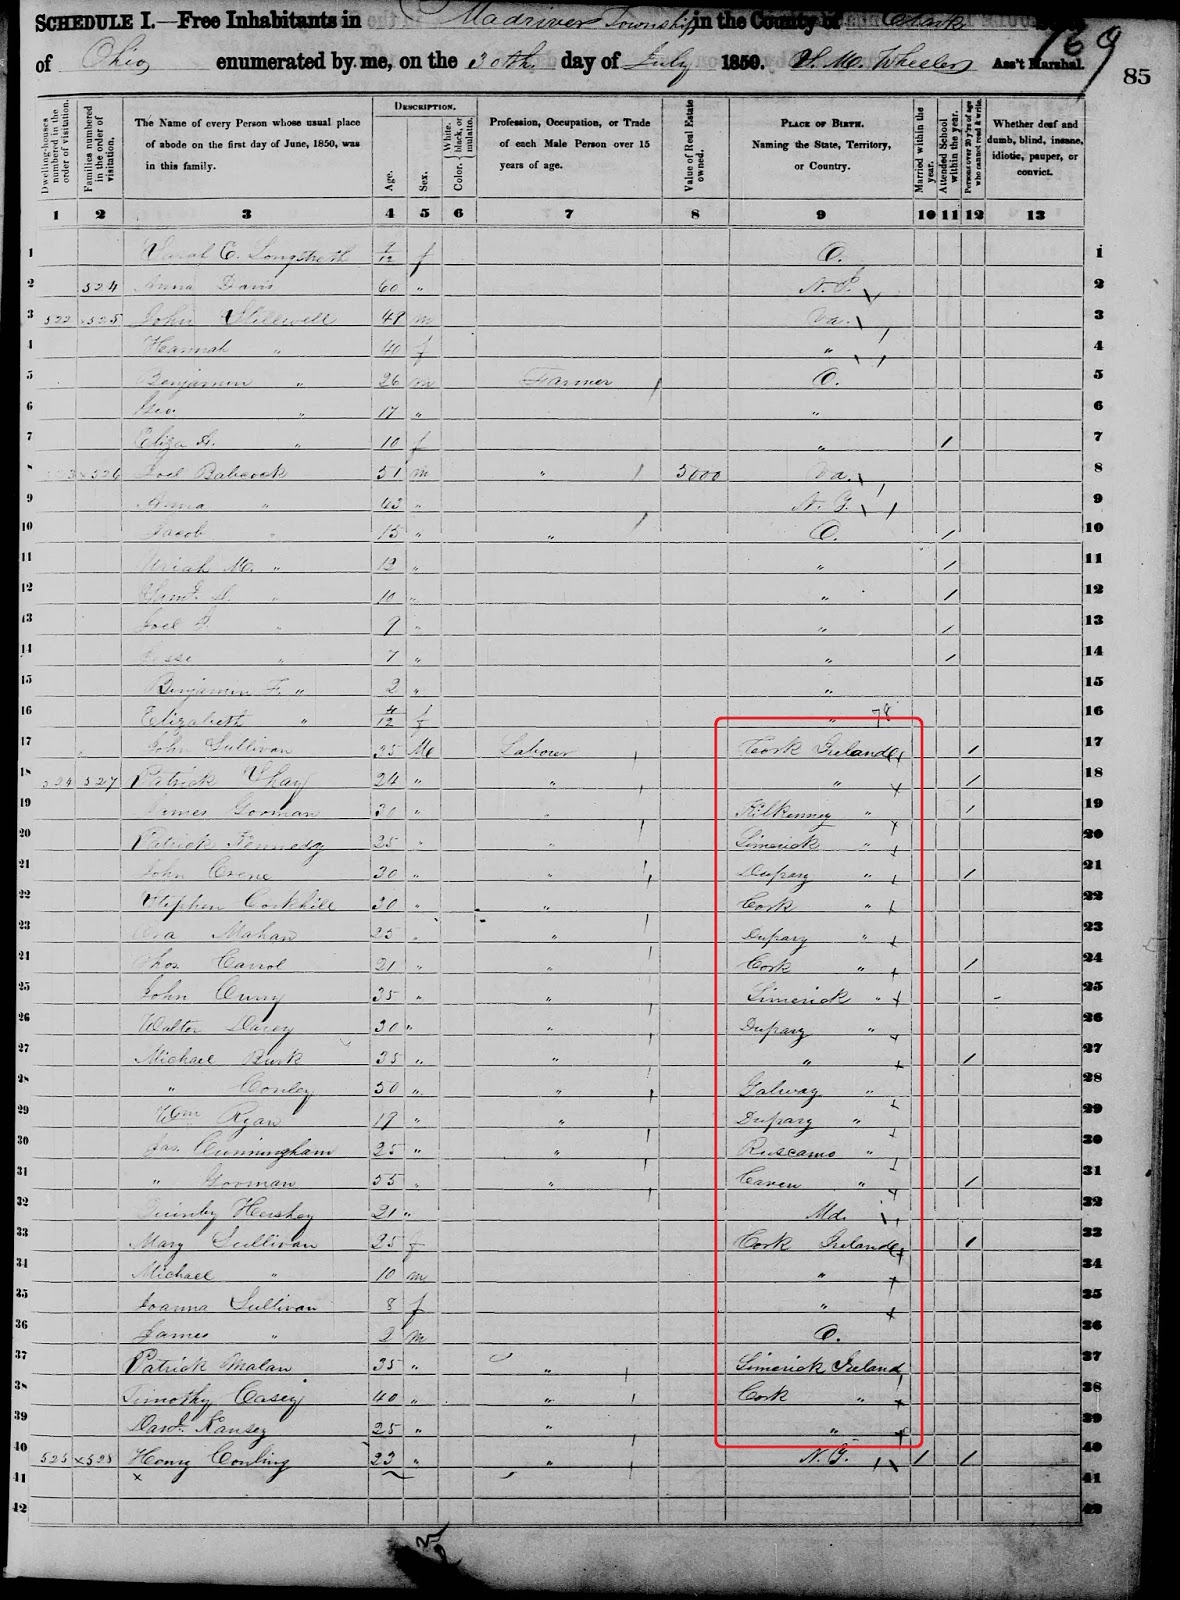 SCHEDULE I.—Free Inhabitants in Madriver Township in the County of Clark
of Ohio enumerated by me, on the 30th day of July 1850. Wheeler Ass't Marshal.
169
85
Dwelling-houses numbered in the order of visitation.
Families numbered in the order of visitation.
The Name of every Person whose usual place of abode on the first day of June, 1850, was in this family.
DESCRIPTION.
Age.
Sex.
Color. { White, black, or mulatto.
Profession, Occupation, or Trade of each Male Person over 15 years of age.
Value of Real Estate owned.
PLACE OF BIRTH. Naming the State, Territory, or Country.
Married within the year.
Attended School within the year.
Persons over 20 y'rs of age who cannot read & write.
Whether deaf and dumb, blind, insane, idiotic, pauper, or convict.
1 2 3 4 5 6 7 8 9 10 11 12 13
1 Sarah E. Longstreth 1/12 f O. 1
2 524 Anna Davis 60 " N. J. 2
3 522 525 John Stillwell 49 m Va. 3
4 Hannah " 40 f " 4
5 Benjamin " 26 m Farmer O. 5
6 Geo. " 17 " " 6
7 Eliza A. " 10 f " / 7
8 523 526 Joel Babcock 51 m " 5000 Va. 8
9 Anna " 43 " N. J. 9
10 Jacob " 15 " " O. / 10
11 Uriah M. " 12 " " / 11
12 " 10 " " / 12
13 Joel " 9 " " / 13
14 Jesse " 7 " " / 14
15 Benjamin F. " 2 " " 15
16 Elizabeth " 4/12 f " 78 16
17 John Sullivan 35 M Laborer Cork Ireland / 17
18 524 527 Patrick Shay 24 " " " / 18
19 James Gorman 30 " " Kilkenney " / 19
20 Patrick Kennedy 25 " " Limerick " 20
21 John Crene 30 " " Dupary " / 21
22 Stephen Corkhill 30 " " Cork " 22
23 Mahan 25 " " Dupary " 23
24 Thos Carrol 21 " " Cork " / 24
25 John Curry 35 " " Limerick " 25
26 Walter Darcy 30 " " Dupary " 26
27 Michael Burk 35 " " " / 27
28 " Conley 50 " " Galway " 28
29 Wm Ryan 19 " " Dupary " 29
30 Jas. Cunningham 25 " " Ruscamo " 30
31 " Gorman 55 " " Caven " / 31
32 Quinby Hershey 21 " Md. 32
33 Mary Sullivan 25 f Cork Ireland / 33
34 Michael " 10 m " 34
35 Joanna Sullivan 8 f " 35
36 James " 2 m O. 36
37 Patrick Malan 35 " " Limerick Ireland 37
38 Timothy Casey 40 " " Cork " 38
39 Danl. Kansey 25 " " " 39
40 525 x528 Henry Conling 23 " " N. J. / / 40
41 x 41
42 42